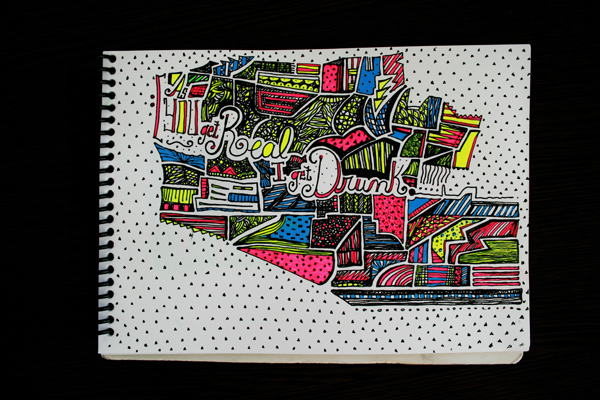 get Real
I get Drunk.